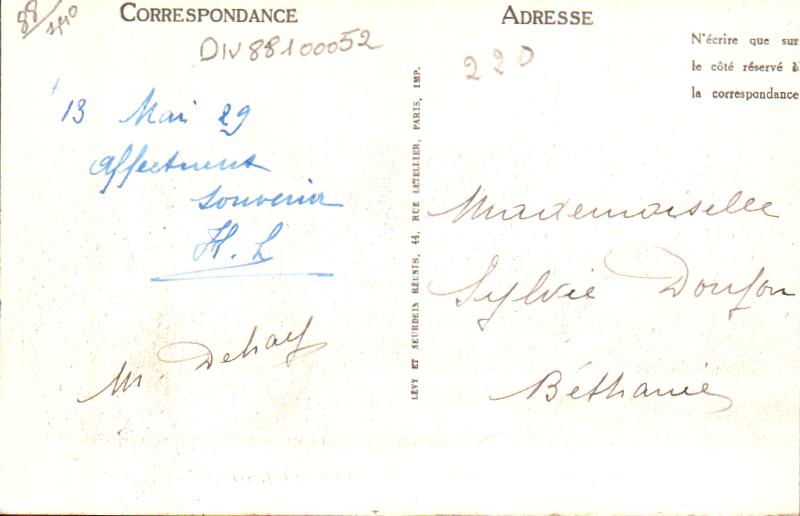 88/
CORRESPONDANCE
DIV88100052
13 Mai 29
affectment
souvenir
H. L
M. Dehay
LÉVY ET NEURDEIN RÉUNIS, 44, RUE LETELLIER, PARIS, IMP.
ADRESSE
220
N'écrire que sur
le côté réservé à
la correspondance
Mademoiselle
Sylvie Doujon
Béthanie